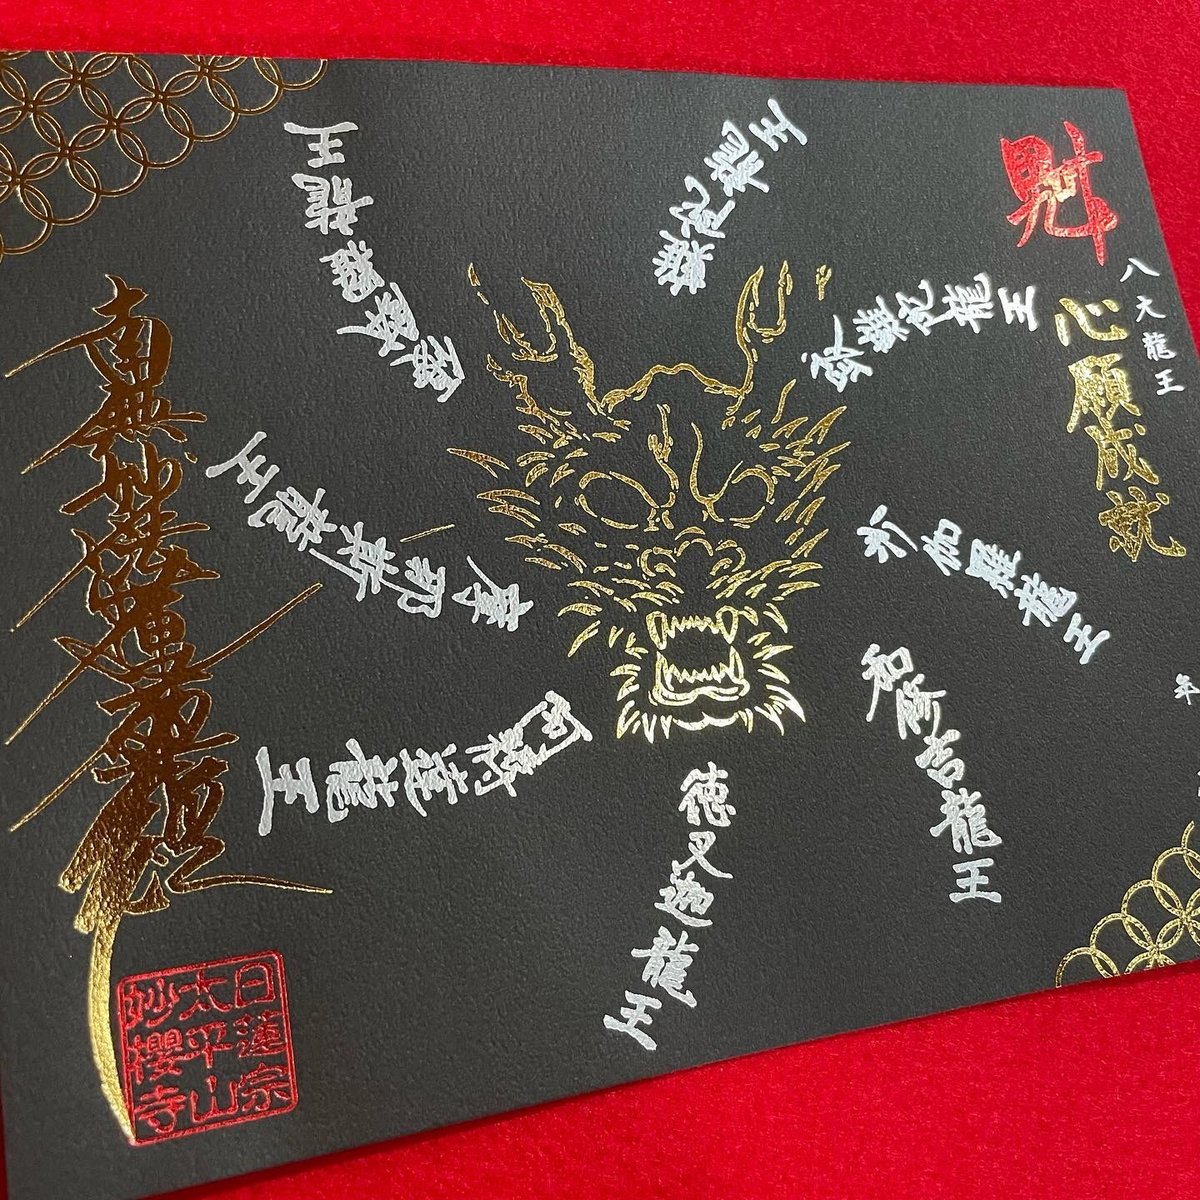 八大龍王
心願成就
年
難陀龍王
跋難陀龍王
沙伽羅龍王
和修吉龍王
徳叉迦龍王
阿耨達龍王
摩那斯龍王
龍王
南無妙法蓮華経
日蓮宗
太平山
妙櫻寺